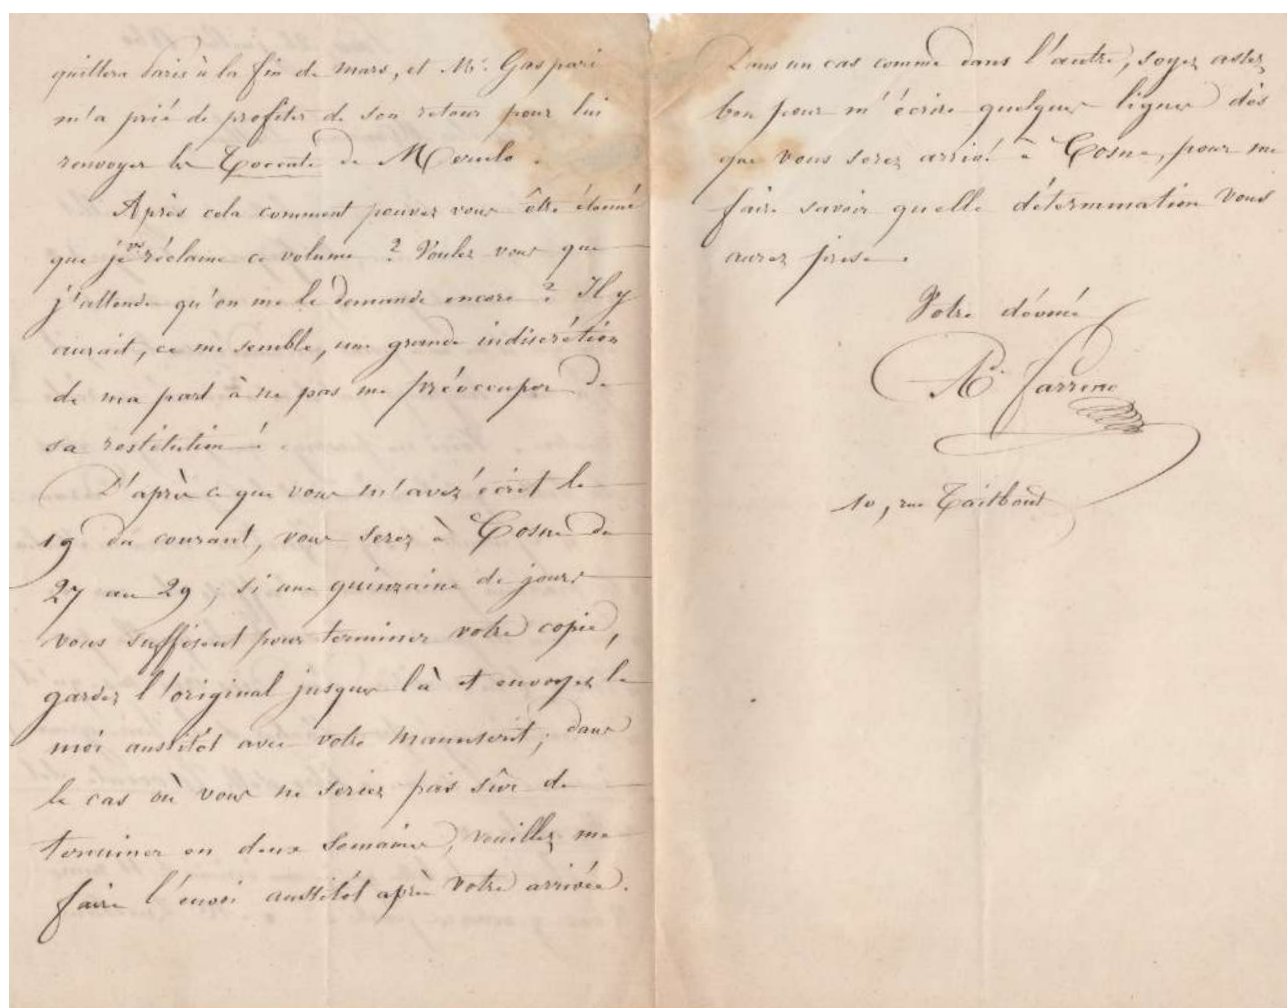 quittera Paris à la fin de mars, et Mr. Gaspari
m'a prié de profiter de son retour pour lui
renvoyer les Toccate de Merulo.
Après cela comment pouvez vous être étonné
que je vs réclame ce volume ? Voulez vous que
j'attende qu'on me le demande encore ? Il y
aurait, ce me semble, une grande indiscrétion
de ma part à ne pas me préoccuper de
sa restitution !
D'après ce que vous m'avez écrit le
19 du courant, vous serez à Cosne du
27 au 29 ; si une quinzaine de jours
vous suffisent pour terminer votre copie,
gardez l'original jusque là et envoyez le
moi aussitôt avec votre manuscrit ; dans
le cas où vous ne seriez pas sûr de
terminer en deux semaines, veuillez me
faire l'envoi aussitôt après votre arrivée.
Dans un cas comme dans l'autre, soyez assez
bon pour m'écrire quelques lignes dès
que vous serez arrivé à Cosne, pour me
faire savoir quelle détermination vous
aurez prise.
Votre dévoué
Ad. Farrenc
10, rue Taitbout